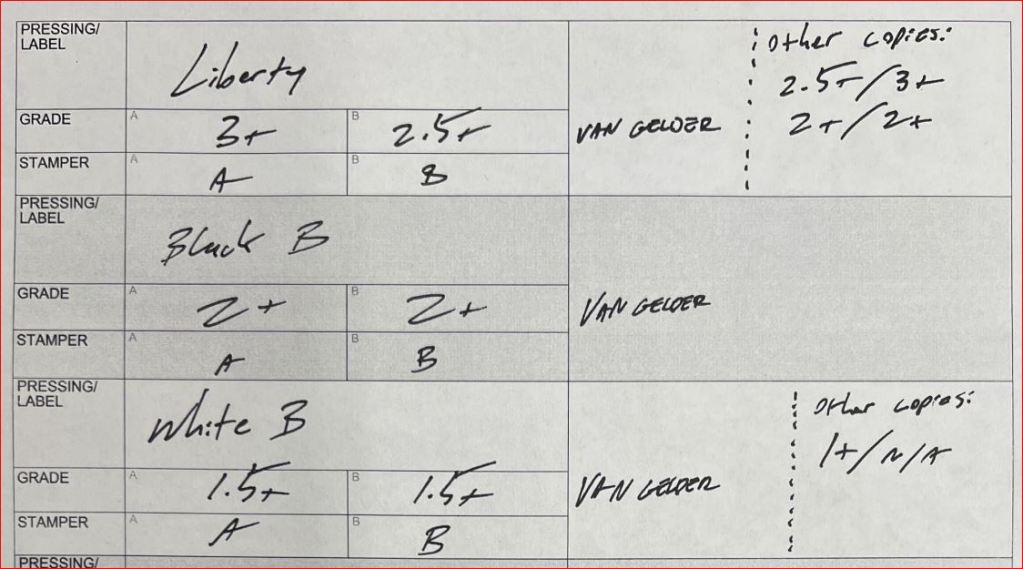 PRESSING/
LABEL
Liberty
Other copies:
2.5+/3+
2+/2+
GRADE
A
3+
B
2.5+
VAN GELDER
STAMPER
A
A
B
B
PRESSING/
LABEL
Black B
GRADE
A
2+
B
2+
VAN GELDER
STAMPER
A
A
B
B
PRESSING/
LABEL
White B
Other copies:
1+/N/A
GRADE
A
1.5+
B
1.5+
VAN GELDER
STAMPER
A
A
B
B
PRESSING/